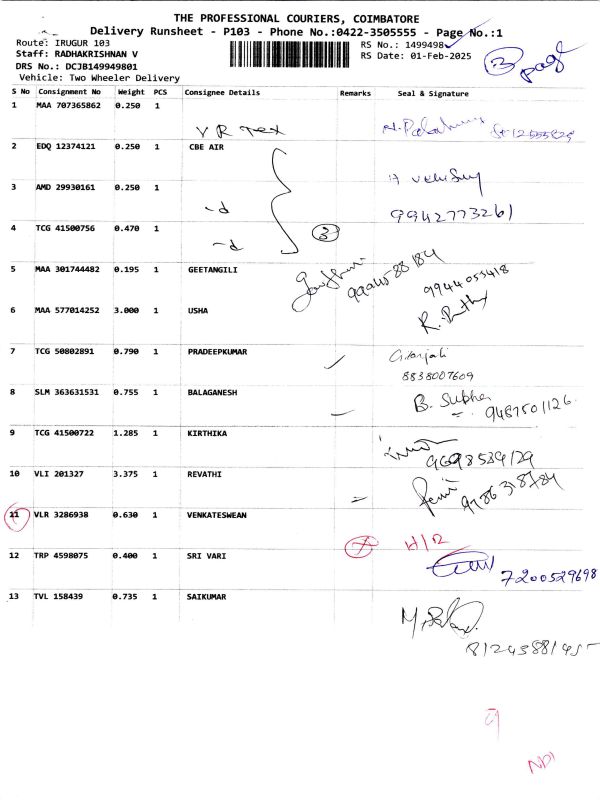 THE PROFESSIONAL COURIERS, COIMBATORE
Delivery Runsheet - P103 - Phone No.:0422-3505555 - Page No.:1
Route: IRUGUR 103 RS No.: 1499498
Staff: RADHAKRISHNAN V RS Date: 01-Feb-2025
DRS No.: DCJB149949801
Vehicle: Two Wheeler Delivery
3 page
S No Consignment No Weight PCS Consignee Details Remarks Seal & Signature
1 MAA 707365862 0.250 1
V R Tex
2 EDQ 12374121 0.250 1 CBE AIR
3 AMD 29930161 0.250 1
-d 9942773261
4 TCG 41500756 0.470 1 3
-d
5 MAA 301744482 0.195 1 GEETANGILI
9944055418
6 MAA 577014252 3.000 1 USHA
7 TCG 50802891 0.790 1 PRADEEPKUMAR Gitanjali
8838007609
8 SLM 363631531 0.755 1 BALAGANESH B. Subha
9487501126
9 TCG 41500722 1.285 1 KIRTHIKA
10 VLI 201327 3.375 1 REVATHI
11 VLR 3286938 0.630 1 VENKATESWEAN
H/R
12 TRP 4598075 0.400 1 SRI VARI
7200529698
13 TVL 158439 0.735 1 SAIKUMAR
NDI